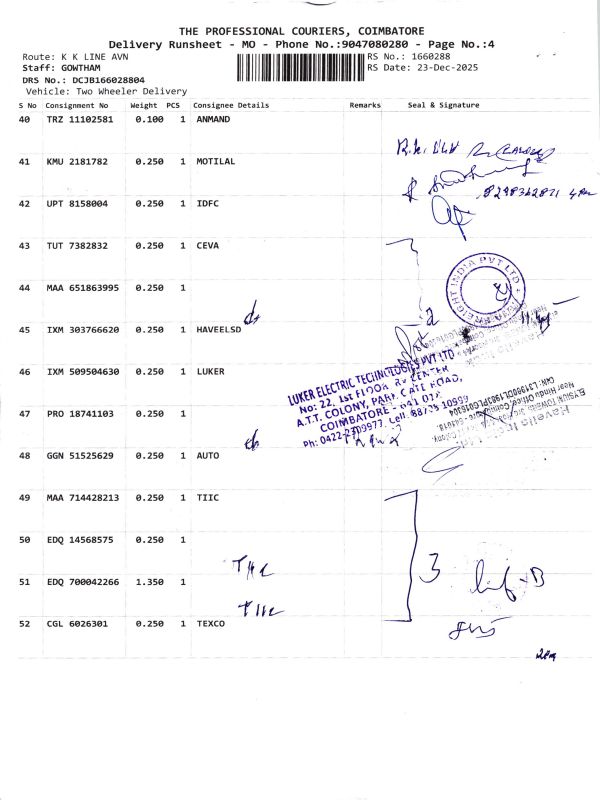 THE PROFESSIONAL COURIERS, COIMBATORE
Delivery Runsheet - MO - Phone No.:9047080280 - Page No.:4
Route: K K LINE AVN
RS No.: 1660288
Staff: GOWTHAM
RS Date: 23-Dec-2025
DRS No.: DCJB166028804
Vehicle: Two Wheeler Delivery
S No Consignment No Weight PCS Consignee Details Remarks Seal & Signature
40 TRZ 11102581 0.100 1 ANMAND
41 KMU 2181782 0.250 1 MOTILAL
8298362871
42 UPT 8158004 0.250 1 IDFC
43 TUT 7382832 0.250 1 CEVA
44 MAA 651863995 0.250 1
FREIGHT INDIA PVT LTD
45 IXM 303766620 0.250 1 HAVEELSD
2
46 IXM 509504630 0.250 1 LUKER
LUKER ELECTRIC TECHNOLOGIES PVT LTD
No: 22, 1st FLOOR, RV CENTER
A.T.T. COLONY, PARK GATE ROAD,
COIMBATORE - 641 018
Ph: 0422-2309977, Cell: 88703 10999
47 PRO 18741103 0.250 1
48 GGN 51525629 0.250 1 AUTO
49 MAA 714428213 0.250 1 TIIC
50 EDQ 14568575 0.250 1
TIIC
3
51 EDQ 700042266 1.350 1
TIIC
52 CGL 6026301 0.250 1 TEXCO